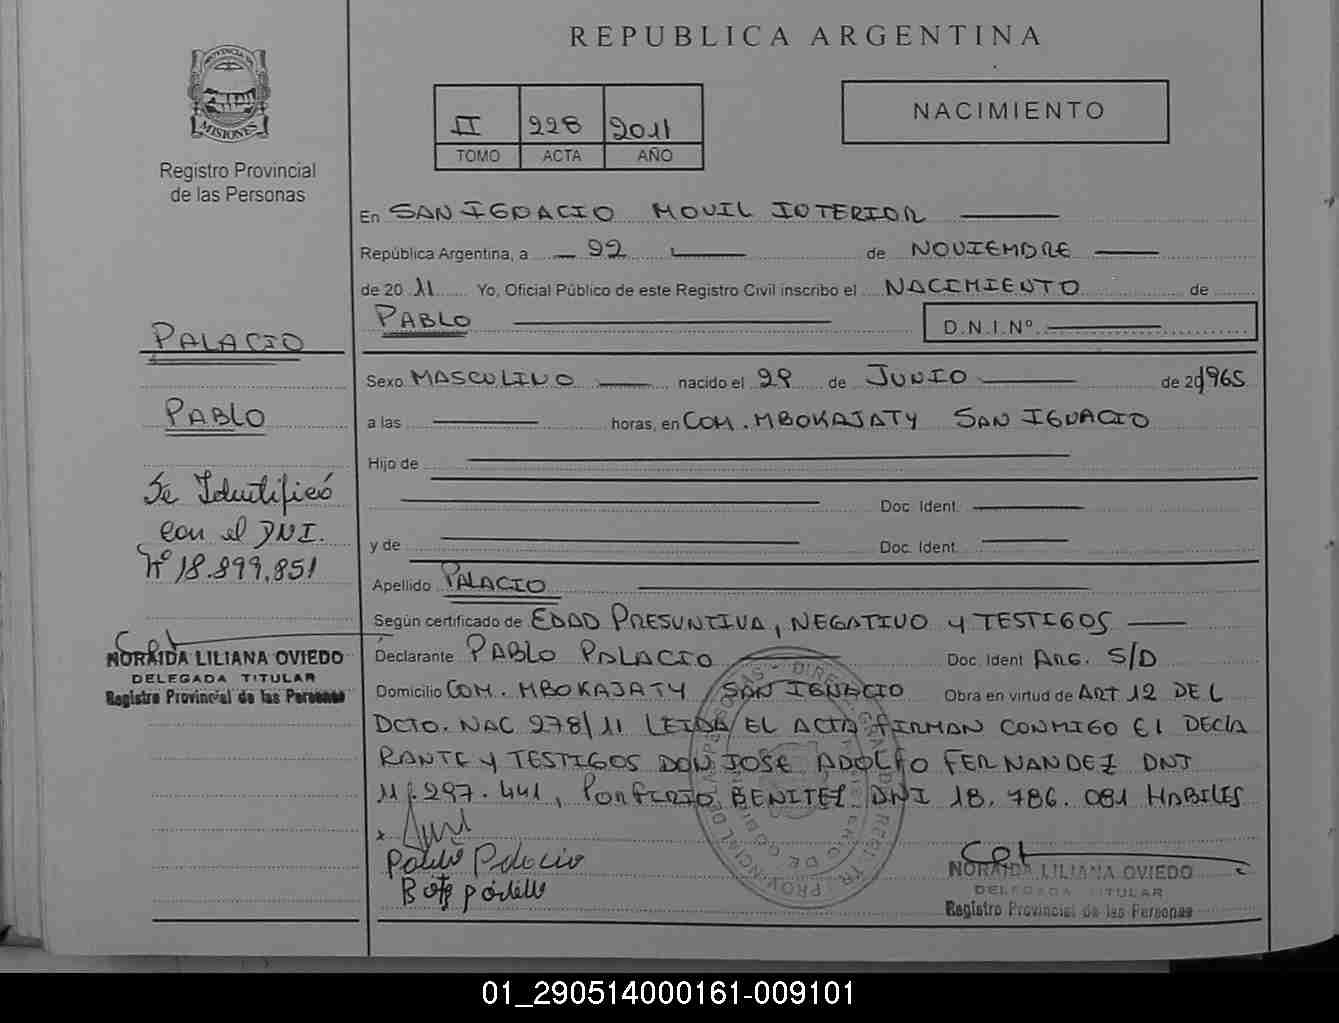 REPUBLICA ARGENTINA
PROVINCIA DE
MISIONES
Registro Provincial
de las Personas
II 228 2011
TOMO ACTA AÑO
NACIMIENTO
En SAN IGNACIO MOVIL INTERIOR
República Argentina, a 22 de NOVIEMBRE
de 20 11 Yo, Oficial Público de este Registro Civil inscribo el NACIMIENTO de
PABLO D.N.I.Nº
Sexo MASCULINO nacido el 29 de JUNIO de 20 1965
a las horas, en COM. MBOKAJATY SAN IGNACIO
Hijo de
Doc. Ident.
y de Doc. Ident.
Apellido PALACIO
Según certificado de EDAD PRESUNTIVA, NEGATIVO Y TESTIGOS
Declarante PABLO PALACIO Doc. Ident ARG. S/D
Domicilio COM. MBOKAJATY SAN IGNACIO Obra en virtud de ART 12 DEL
DCTO. NAC 278/11 LEIDA EL ACTA FIRMAN CONMIGO EL DECLA
RANTE Y TESTIGOS DON JOSE ADOLFO FERNANDEZ DNI
11.297.441, PORFIRIO BENITEZ DNI 18.786.081 HABILES
Pablo Palacio
NORAIDA LILIANA OVIEDO
DELEGADA TITULAR
Registro Provincial de las Personas
PALACIO
PABLO
Se Identificó
con el DNI.
Nº 18.899.851
NORAIDA LILIANA OVIEDO
DELEGADA TITULAR
Registro Provincial de las Personas
01_290514000161-009101